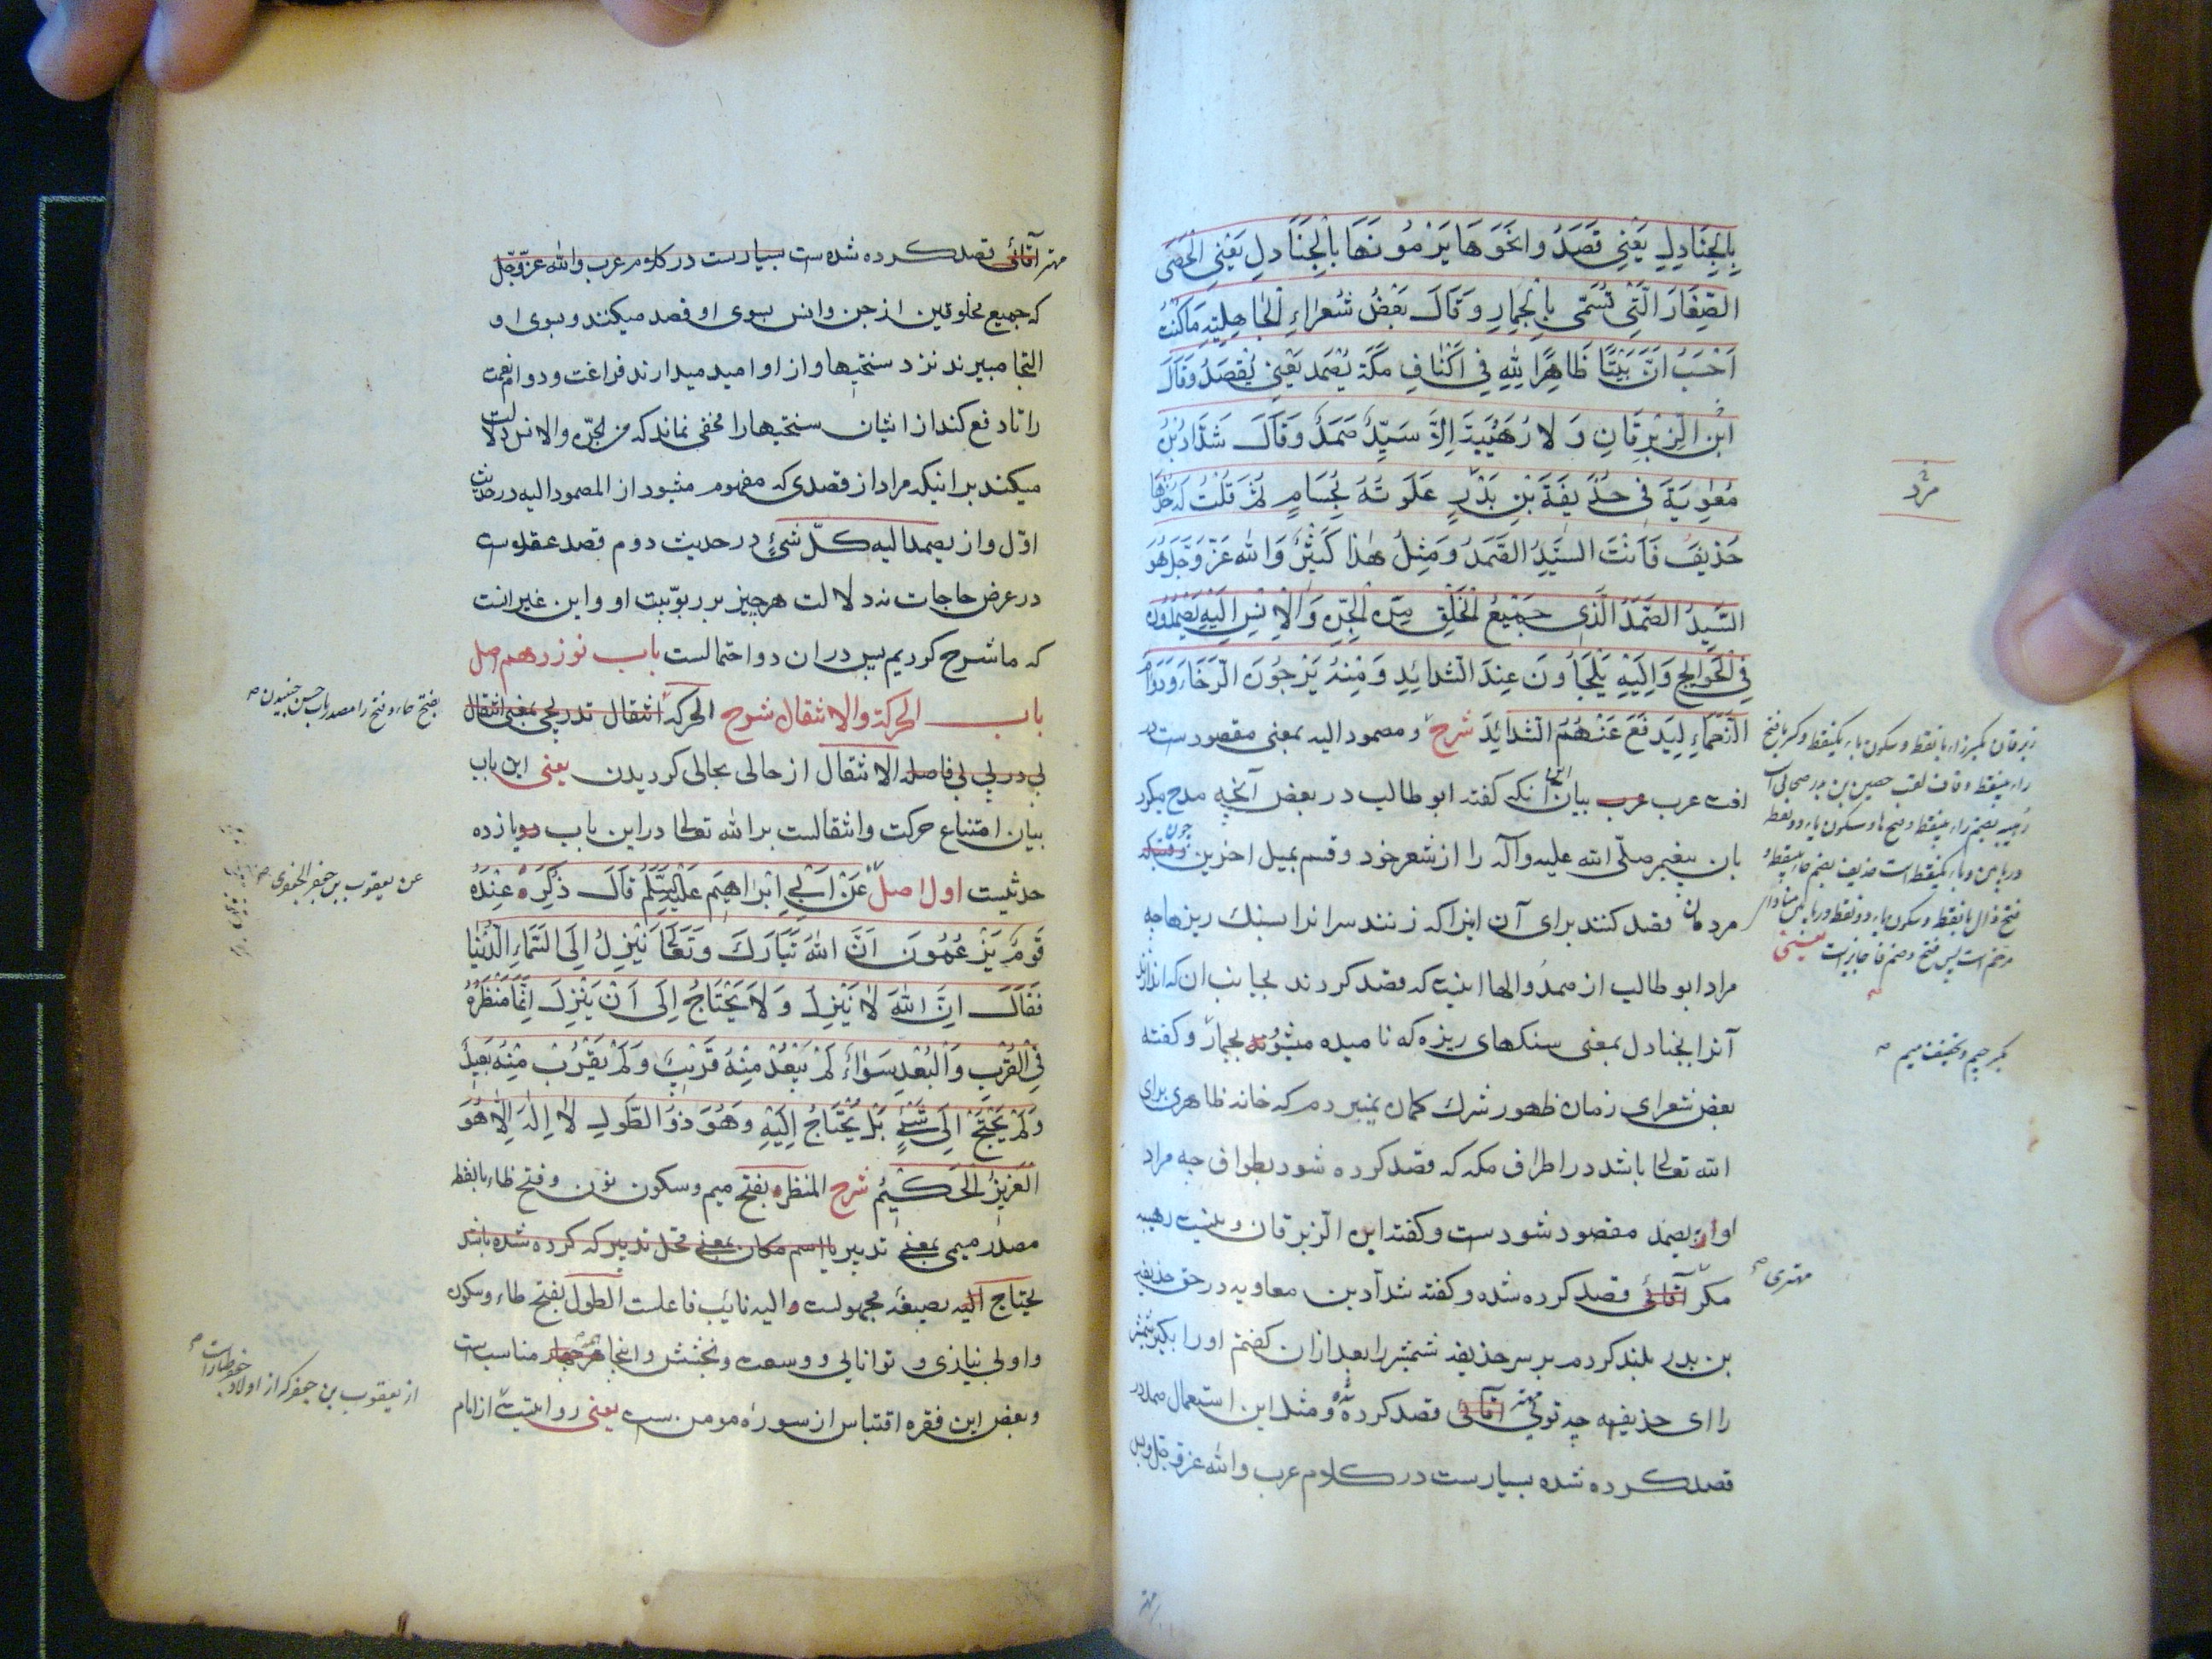 بِالْجَنَادِلِ يَعْنِي قَصَدُوا نَحْوَهَا يَرْمُونَهَا بِالْجَنَادِلِ يَعْنِي الْحَصَى
الصِّغَارَ الَّتِي تُسَمَّى بِالْجِمَارِ وَقَالَ بَعْضُ شُعَرَاءِ الْجَاهِلِيَّةِ مَا كُنْتُ
اَحْسَبُ اَنَّ بَيْتًا ظَاهِرًا لِلّهِ فِي اَكْنَافِ مَكَّةَ يُصْمَدُ يَعْنِي يُقْصَدُ وَقَالَ
ابْنُ الزِّبْرِقَانِ وَلا رُهَيْبَةَ اِلَّا سَيِّدٌ صَمَدٌ وَقَالَ شَدَّادُ بْنُ
مُعٰوِيَةَ فِي حُذَيْفَةَ بْنِ بَدْرٍ عَلَوْتُهُ بِحُسَامٍ ثُمَّ قُلْتُ لَهُ خُذْهَا
حُذَيْفُ فَاَنْتَ السَّيِّدُ الصَّمَدُ وَمِثْلُ هٰذَا كَثِيْرٌ وَاللّٰهُ عَزَّ وَجَلَّ هُوَ
السَّيِّدُ الصَّمَدُ الَّذِي جَمِيْعُ الْخَلْقِ مِنَ الْجِنِّ وَالْاِنْسِ اِلَيْهِ يَصْمُدُونَ
فِي الْحَوَائِجِ وَاِلَيْهِ يَلْجَاُونَ عِنْدَ الشَّدَائِدِ وَمِنْهُ يَرْجُونَ الرَّخَاءَ وَدَوَامَ
النَّعْمَاءِ لِيَدْفَعَ عَنْهُمُ الشَّدَائِدَ شرح ومصمود اليه بمعنى مقصودست در
لغت عرب عرب بيان اين انكه گفته ابو طالب در بعض آنچه مدح ميكرد
بان پيغمبر صلّى الله عليه وآله را از شعر خود وقسم بميل اخرين چون
مردمان قصد كنند براى آن اينرا كه زنند سر انرا بسنك ريزها چه
مراد ابو طالب از صمدُوا لها اينست كه قصد كردند بجانب ان كه اندازند
آنرا بجنادل بمعنى سنكهاى ريزه كه ناميده ميشوند بجمار وگفته
بعض شعراى زمان ظهور شرك كمان نميبردم كه خانه ظاهرى براى
الله تعالى باشد در اطراف مكه كه قصد كرده شود بطواف چه مراد
او از يصمد مقصود شودست وگفته ابن الزبرقان ونيست رهيبه
مكر آقائى قصد كرده شده وگفته شدّاد بن معاويه در حق حذيفه
بن بدر بلند كردم بر سر حذيفه شمشير را بعد ازان گفتم او را بگير شمشير
را اى حذيفه چه توئى مهتر آقائى قصد كرده شده ومثل اين استعمال صمد در
قصد كرده شده بسيارست در كلام عرب والله عز وجل
مهتر
مهترى
بكسر جيم وتخفيف ميم
زبرقان بكسر زاء بانقطه وسكون باء يكنقطه وكسر يا فتح
راء بينقطه وقاف لقب حصين بن بدر صحابى است
رهيبه بضم راء بينقطه وفتح ها وسكون ياء دونقطه
در پايين وباء يكنقطه است حذيف بضم حاء بينقطه
فتح ذال بانقطه وسكون ياء دونقطه در پايين منادا
مرخم است پس فتح وضم فا جايز است يعنى
مهتر آقائى قصد كرده شده ست بسيارست در كلام عرب والله عزّ وجل
كه جميع مخلوقين از جن وانس بسوى او قصد ميكنند وبسوى او
التجا ميبرند نزد سختيها واز او اميد ميدارند فراغت ودوام نعمت
را تا دفع كند از ايشان سختيها را مخفى نماند كه من الجنّ والانس دلالت
ميكند بر اينكه مراد از قصدى كه مفهوم ميشود از المصمود اليه در حديث
اوّل واز يصمد اليه كلّ شئ در حديث دوم قصد عقلاست
در عرض حاجات نه دلالت هر چيز بر ربوبيت او واين غير انست
كه ما شرح كرديم پس دران دو احتمالست باب نوزدهم اصل
باب الحركة والانتقال شرح الحركة انتقال تدريجى بمعنى انتقال
پى در پى بى فاصله الانتقال از حالى بحالى كرديدن يعنى اين باب
بيان امتناع حركت وانتقالست بر الله تعالى در اين باب يازده
حديثست اول اصل عَنْ اَبِي اِبْرَاهِيمَ عَلَيْهِ السَّلَمُ قَالَ ذُكِرَ عِنْدَهُ
قَوْمٌ يَزْعُمُونَ اَنَّ اللهَ تَبَارَكَ وَتَعَالَى يَنْزِلُ اِلَى السَّمَاءِ الدُّنْيَا
فَقَالَ اِنَّ اللهَ لَا يَنْزِلُ وَلَا يَحْتَاجُ اِلَى اَنْ يَنْزِلَ اِنَّمَا مَنْظَرُهُ
فِي الْقُرْبِ وَالْبُعْدِ سَوَاءٌ لَمْ يَبْعُدْ مِنْهُ قَرِيْبٌ وَلَمْ يَقْرُبْ مِنْهُ بَعِيْدٌ
وَلَمْ يَحْتَجْ اِلَى شَيْءٍ بَلْ يُحْتَاجُ اِلَيْهِ وَهُوَ ذُو الطَّوْلِ لَا اِلٰهَ اِلَّا هُوَ
الْعَزِيْزُ الْحَكِيْمُ شرح المنظر بفتح ميم وسكون نون وفتح ظاء بانقطه
مصدر ميمى بمعنى تدبير يا اسم مكان بمعنى محل تدبير كه كرده شده باشد
يحتاج اليه بصيغه مجهولست واليه نايب فاعلست الطول بفتح طاء وسكون
واو بى نيازى وتوانائى ووسعت وبخشش واينجا مناسب است
وبعض اين فقره اقتباس از سوره مومن ست يعنى روايتست از امام
عن يعقوب بن جعفر الجعفرى